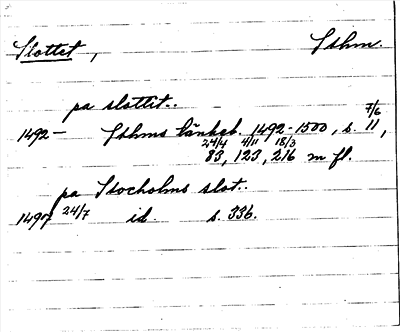 Slottet, Sthm.
pa slottit..
1492 – Sthms tänkeb. 1492-1500, s. 11, 7/6
24/4 4/11 18/3
83, 123, 216 m fl.
pa Stocholms slot..
1497 24/7 id. s. 336.